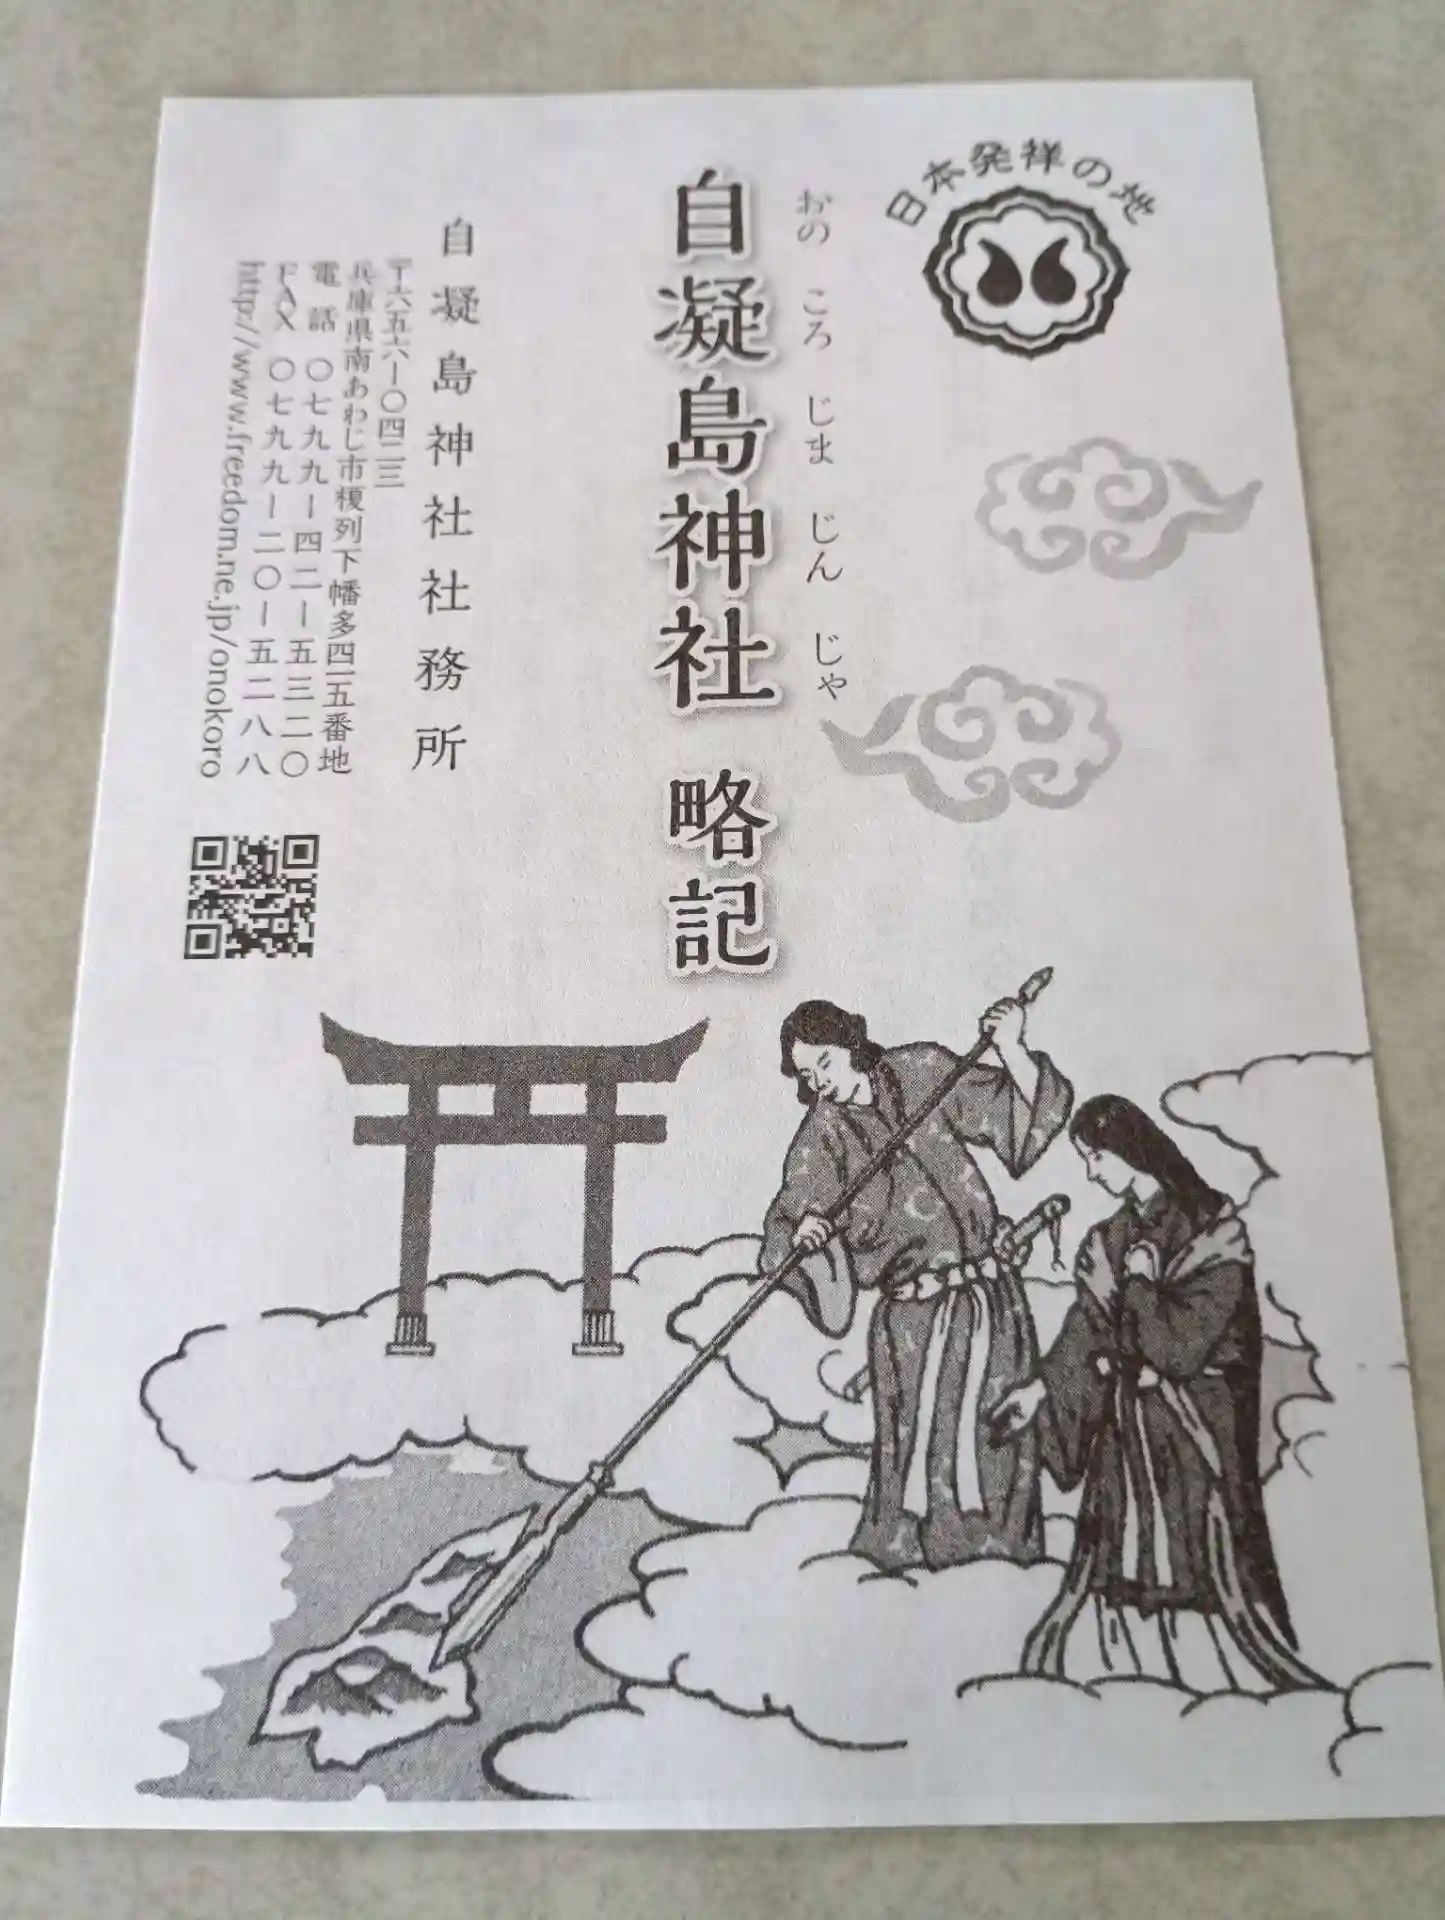 日本発祥の地
おのころじまじんじゃ
自凝島神社 略記
自凝島神社社務所
〒六五六ー〇四二三
兵庫県南あわじ市榎列下幡多四一五番地
電話 〇七九九ー四二ー五三二〇
FAX 〇七九九ー二〇ー五二八八
http://www.freedom.ne.jp/onokoro